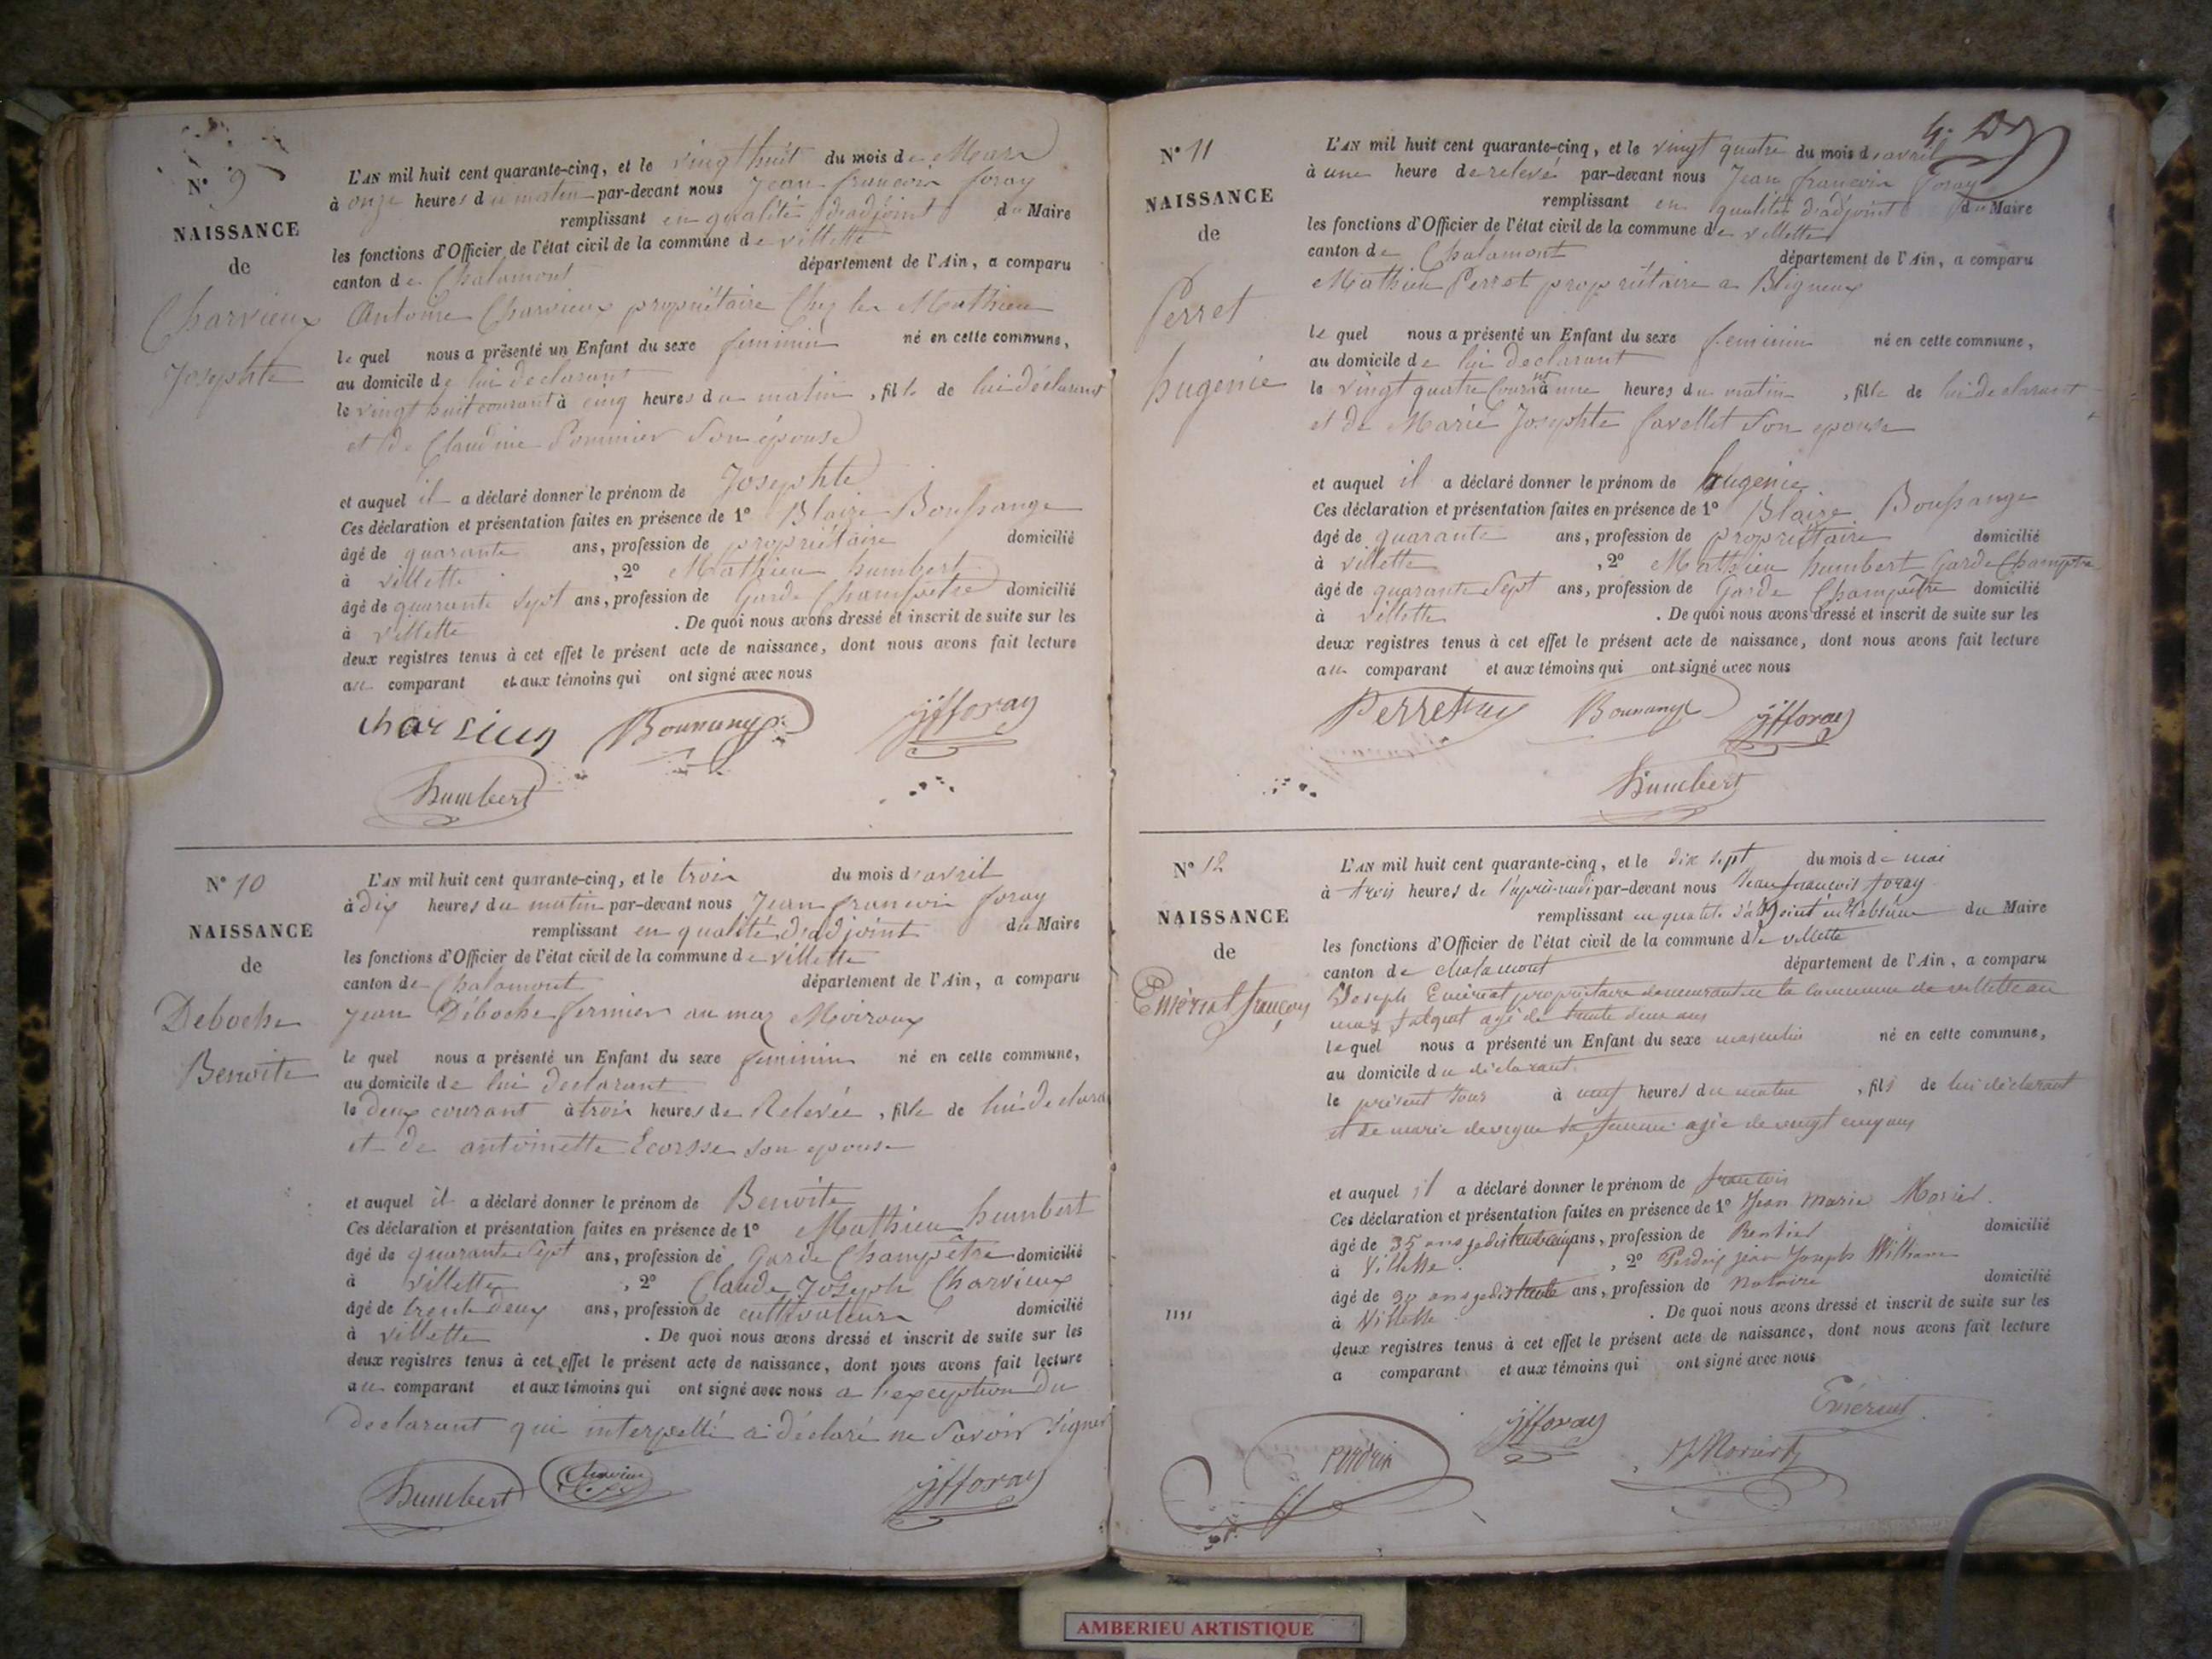 N° 9
NAISSANCE
de
Charvieux
Josephte
L'AN mil huit cent quarante-cinq, et le vingt huit du mois de Mars
à onze heures du matin par-devant nous Jean françois foray
remplissant en qualité d'adjoint du Maire
les fonctions d'Officier de l'état civil de la commune de villette
canton de Chalamont département de l'Ain, a comparu
Antoine Charvieux propriétaire Chez les Mathieu
le quel nous a présenté un Enfant du sexe feminin né en cette commune,
au domicile de lui declarant
le vingt huit courant à cinq heures du matin, fille de lui déclarant
et de Claudine Pommier Son épouse
et auquel il a déclaré donner le prénom de Josephte
Ces déclaration et présentation faites en présence de 1° Blaize Boussange
âgé de quarante ans, profession de propriétaire domicilié
à villette, 2° Mathieu humbert
âgé de quarante sept ans, profession de Garde Champêtre domicilié
à villette. De quoi nous avons dressé et inscrit de suite sur les
deux registres tenus à cet effet le présent acte de naissance, dont nous avons fait lecture
au comparant et aux témoins qui ont signé avec nous
jfforay
humbert
N° 10
NAISSANCE
de
Deboche
Benoite
L'AN mil huit cent quarante-cinq, et le trois du mois d'avril
à dix heures du matin par-devant nous Jean françois foray
remplissant en qualité d'adjoint du Maire
les fonctions d'Officier de l'état civil de la commune de villette
canton de Chalamont département de l'Ain, a comparu
Jean Déboche fermier au maz Moiroux
le quel nous a présenté un Enfant du sexe feminin né en cette commune,
au domicile de lui declarant
le deux courant à trois heures de Relevée, fille de lui declara
et de antoinette Ecorsse son epouse
et auquel il a déclaré donner le prénom de Benoite
Ces déclaration et présentation faites en présence de 1° Mathieu humbert
âgé de quarante sept ans, profession de Garde Champêtre domicilié
à villette, 2° Claude Joseph Charvieux
âgé de trente deux ans, profession de cultivateur domicilié
à villette. De quoi nous avons dressé et inscrit de suite sur les
deux registres tenus à cet effet le présent acte de naissance, dont nous avons fait lecture
au comparant et aux témoins qui ont signé avec nous a l'exception du
declarant qui interpellé a déclaré ne Savoir Signer
humbert Charvieux jfforay
N° 11
NAISSANCE
de
Perret
hugenie
L'AN mil huit cent quarante-cinq, et le vingt quatre du mois d'avril
à une heure de relevé par-devant nous Jean françois Foray
remplissant en qualité d'adjoint du Maire
les fonctions d'Officier de l'état civil de la commune de villette
canton de Chalamont département de l'Ain, a comparu
Mathieu Perret propriétaire a Bligneux
le quel nous a présenté un Enfant du sexe feminin né en cette commune,
au domicile de lui declarant
le vingt quatre Courant à une heures du matin, fille de lui declarant
et de Marie Josephte favellet Son epouse
et auquel il a déclaré donner le prénom de hugenie
Ces déclaration et présentation faites en présence de 1° Blaize Boussange
âgé de quarante ans, profession de propriétaire domicilié
à villette, 2° Mathieu humbert Garde Champetre
âgé de quarante Sept ans, profession de Garde Champêtre domicilié
à villette. De quoi nous avons dressé et inscrit de suite sur les
deux registres tenus à cet effet le présent acte de naissance, dont nous avons fait lecture
au comparant et aux témoins qui ont signé avec nous
jfforay
humbert
N° 12
NAISSANCE
de
Emeriat françois
L'AN mil huit cent quarante-cinq, et le dix sept du mois de mai
à trois heures de l'après-midi par-devant nous Jean françois foray
remplissant en qualité d'adjoint en l'absence du Maire
les fonctions d'Officier de l'état civil de la commune de villette
canton de chalamont département de l'Ain, a comparu
Joseph Emeriat propriétaire demeurant en la commune de villette au
maz agé de trente deux ans
lequel nous a présenté un Enfant du sexe masculin né en cette commune,
au domicile du déclarant
le présent Jour à neuf heures du matin, fils de lui déclarant
et de marie devigne sa femme agée de vingt cinq ans
et auquel il a déclaré donner le prénom de francois
Ces déclaration et présentation faites en présence de 1° Jean Marie Morier
âgé de 35 ans je dis trente cinq ans, profession de Rentier domicilié
à Villette, 2° Perdrix jean Joseph
âgé de 30 ans je dis trente ans, profession de Notaire domicilié
à Villette. De quoi nous avons dressé et inscrit de suite sur les
deux registres tenus à cet effet le présent acte de naissance, dont nous avons fait lecture
a comparant et aux témoins qui ont signé avec nous
Emeriat
perdrix jfforay
AMBERIEU ARTISTIQUE